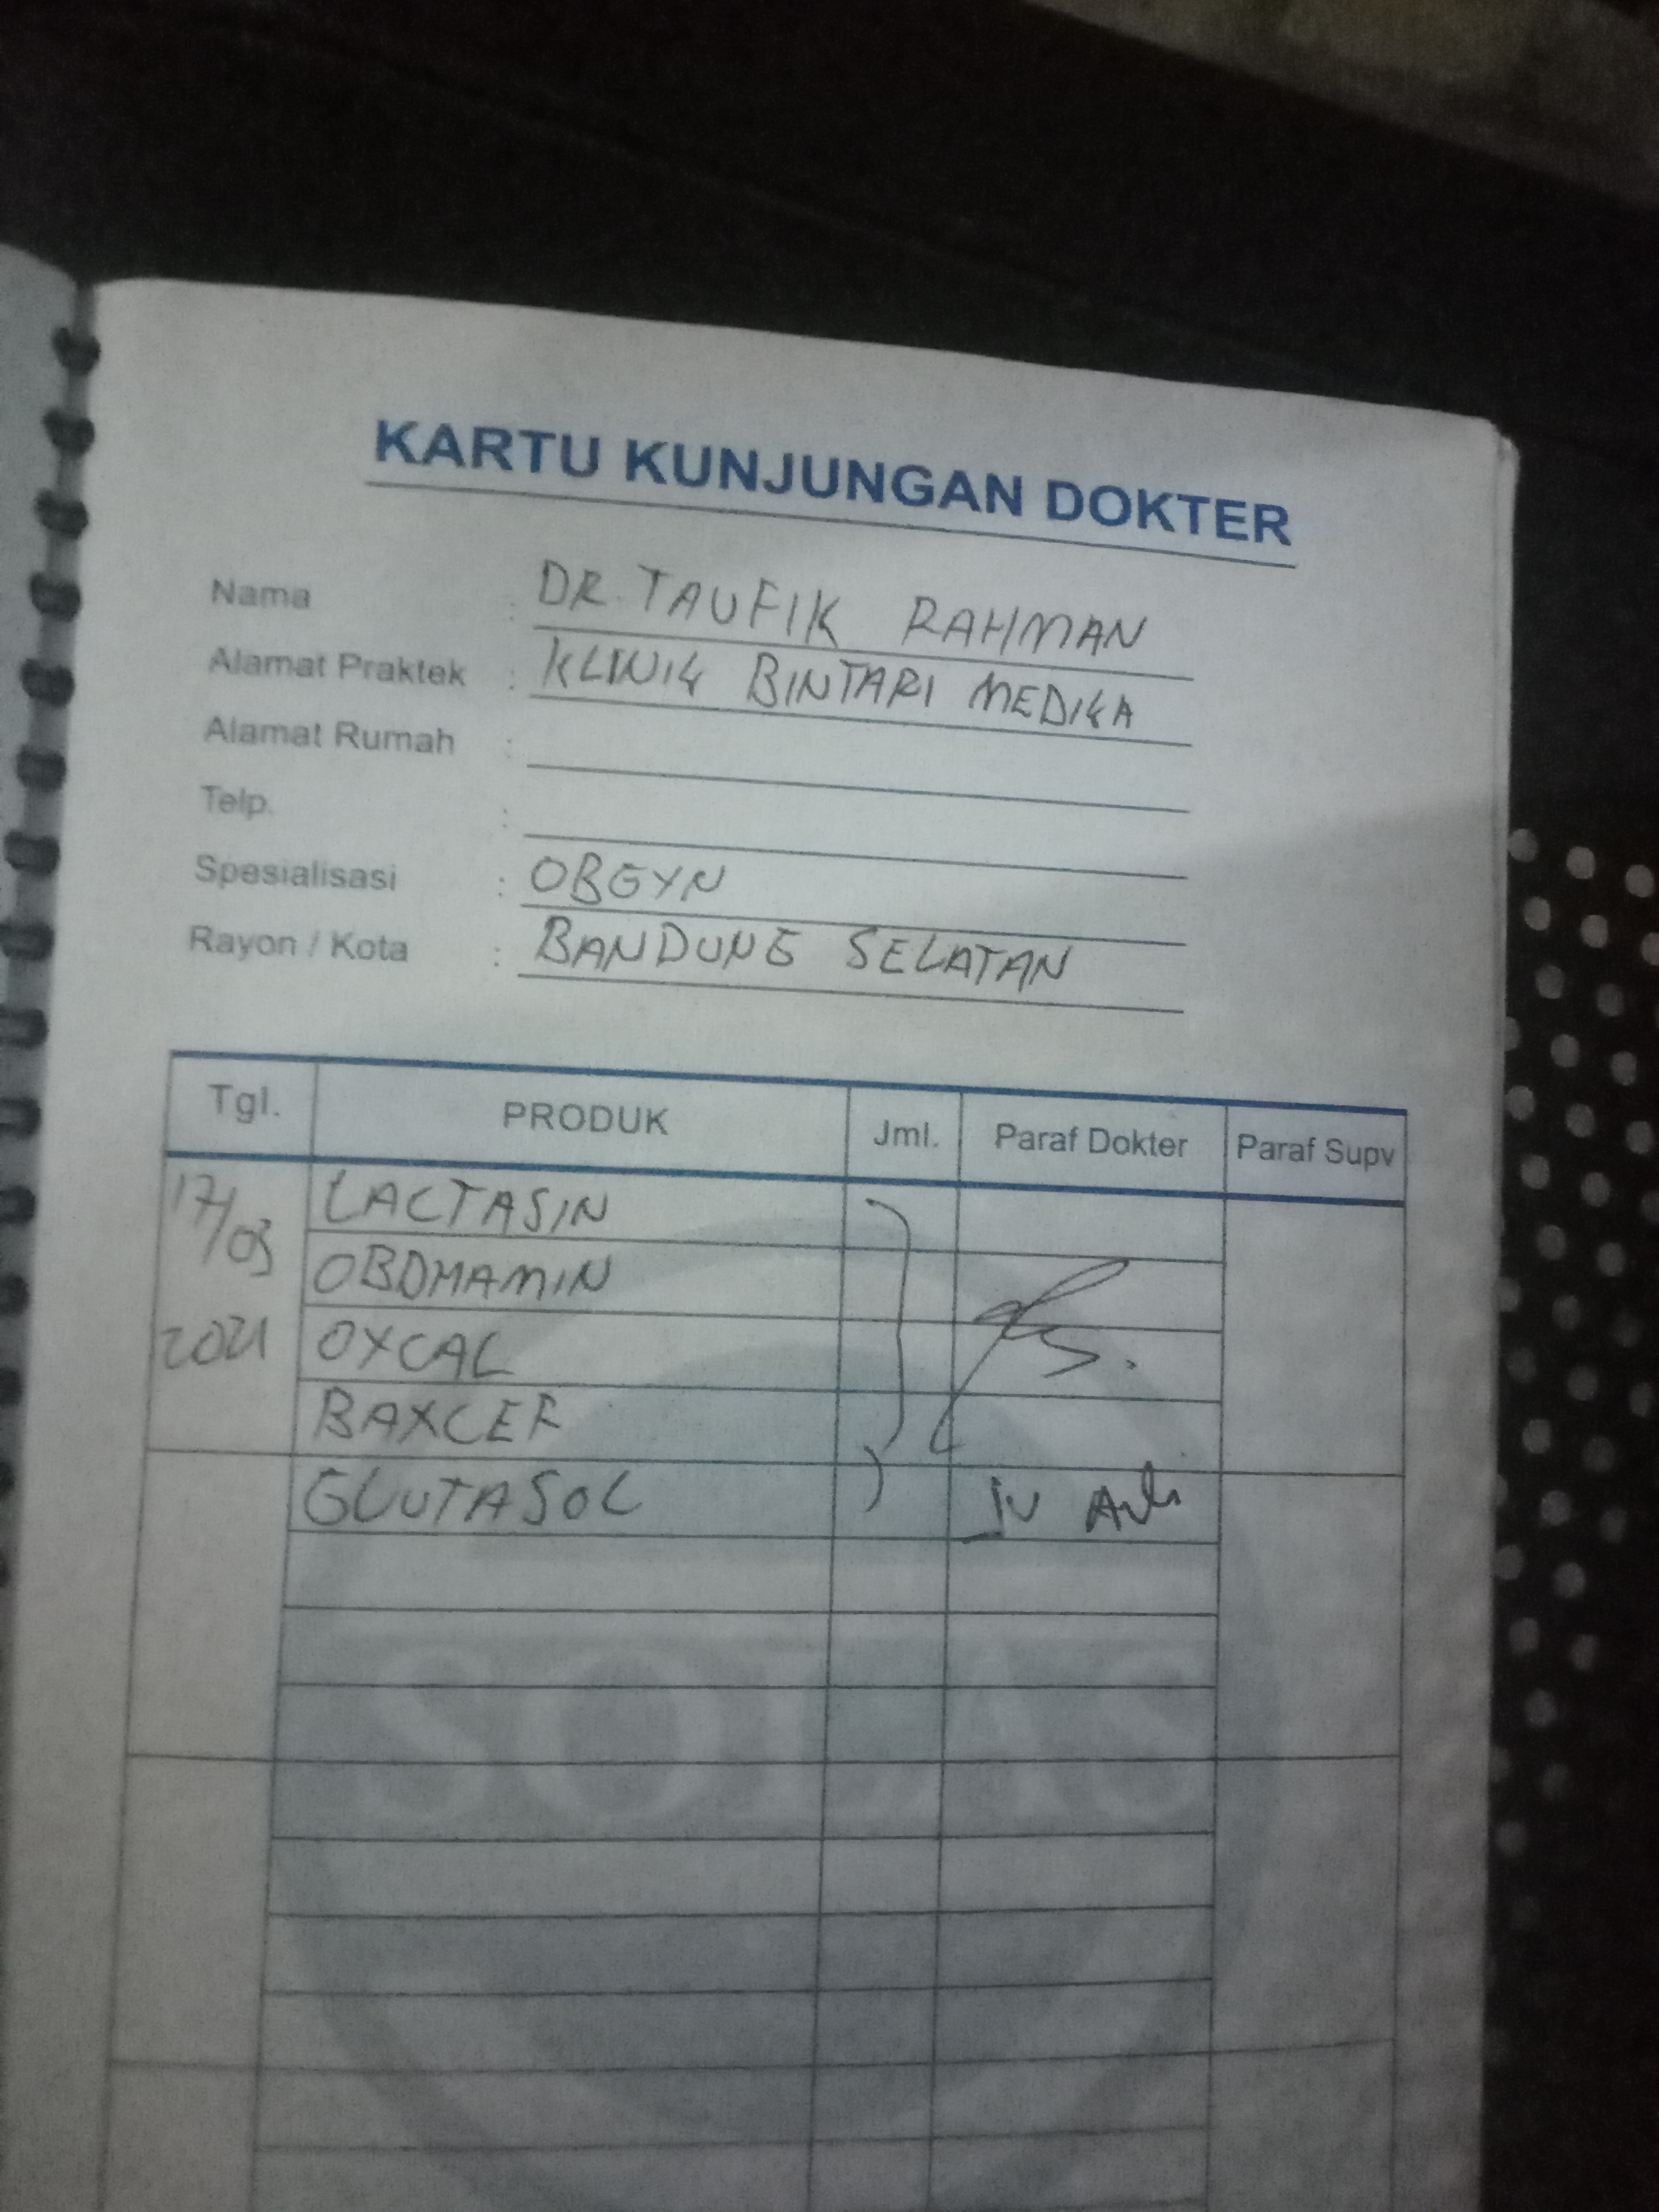 KARTU KUNJUNGAN DOKTER
Nama : DR. TAUFIK RAHMAN
Alamat Praktek : KLINIK BINTARI MEDIKA
Alamat Rumah :
Telp. :
Spesialisasi : OBGYN
Rayon / Kota : BANDUNG SELATAN
Tgl. PRODUK Jml. Paraf Dokter Paraf Supv
17/03 LACTASIN
OBDMAMIN
2021 OXCAL
BAXCEF
GLUTASOL
SOLAS